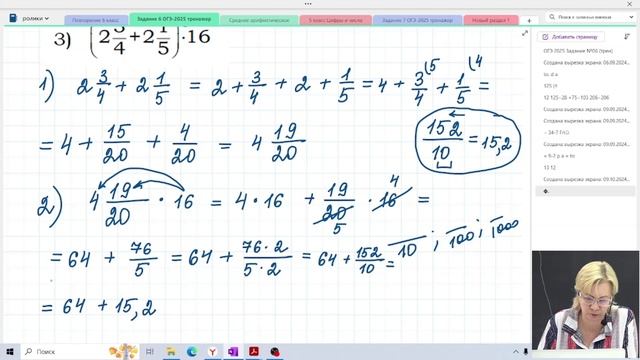 ролики
Повторение 6 класс
Задание 6 ОГЭ-2025 тренажер
Среднее арифметическое
5 класс Цифры и числа
Задание 7 ОГЭ-2025 тренажер
Новый раздел 1
Поиск по записным книжкам
Добавить страницу
ОГЭ 2025 Задание №06 (прим)
Создана вырезка экрана: 06.09.2024...
Создана вырезка экрана: 09.09.2024...
Создана вырезка экрана: 09.09.2024...
Создана вырезка экрана: 09.09.2024...
Создана вырезка экрана: 09.10.2024...
3) (2 3/4 + 2 1/5) · 16
1) 2 3/4 + 2 1/5 = 2 + 3/4 + 2 + 1/5 = 4 + 3/4 (5 + 1/5 (4 =
= 4 + 15/20 + 4/20 = 4 19/20
152/10 = 15,2
2) 4 19/20 · 16 = 4 · 16 + 19/20 5 · 16 4 =
= 64 + 76/5 = 64 + 76·2/5·2 = 64 + 152/10 =
/10 ; /100 ; /1000
= 64 + 15,2
Поиск